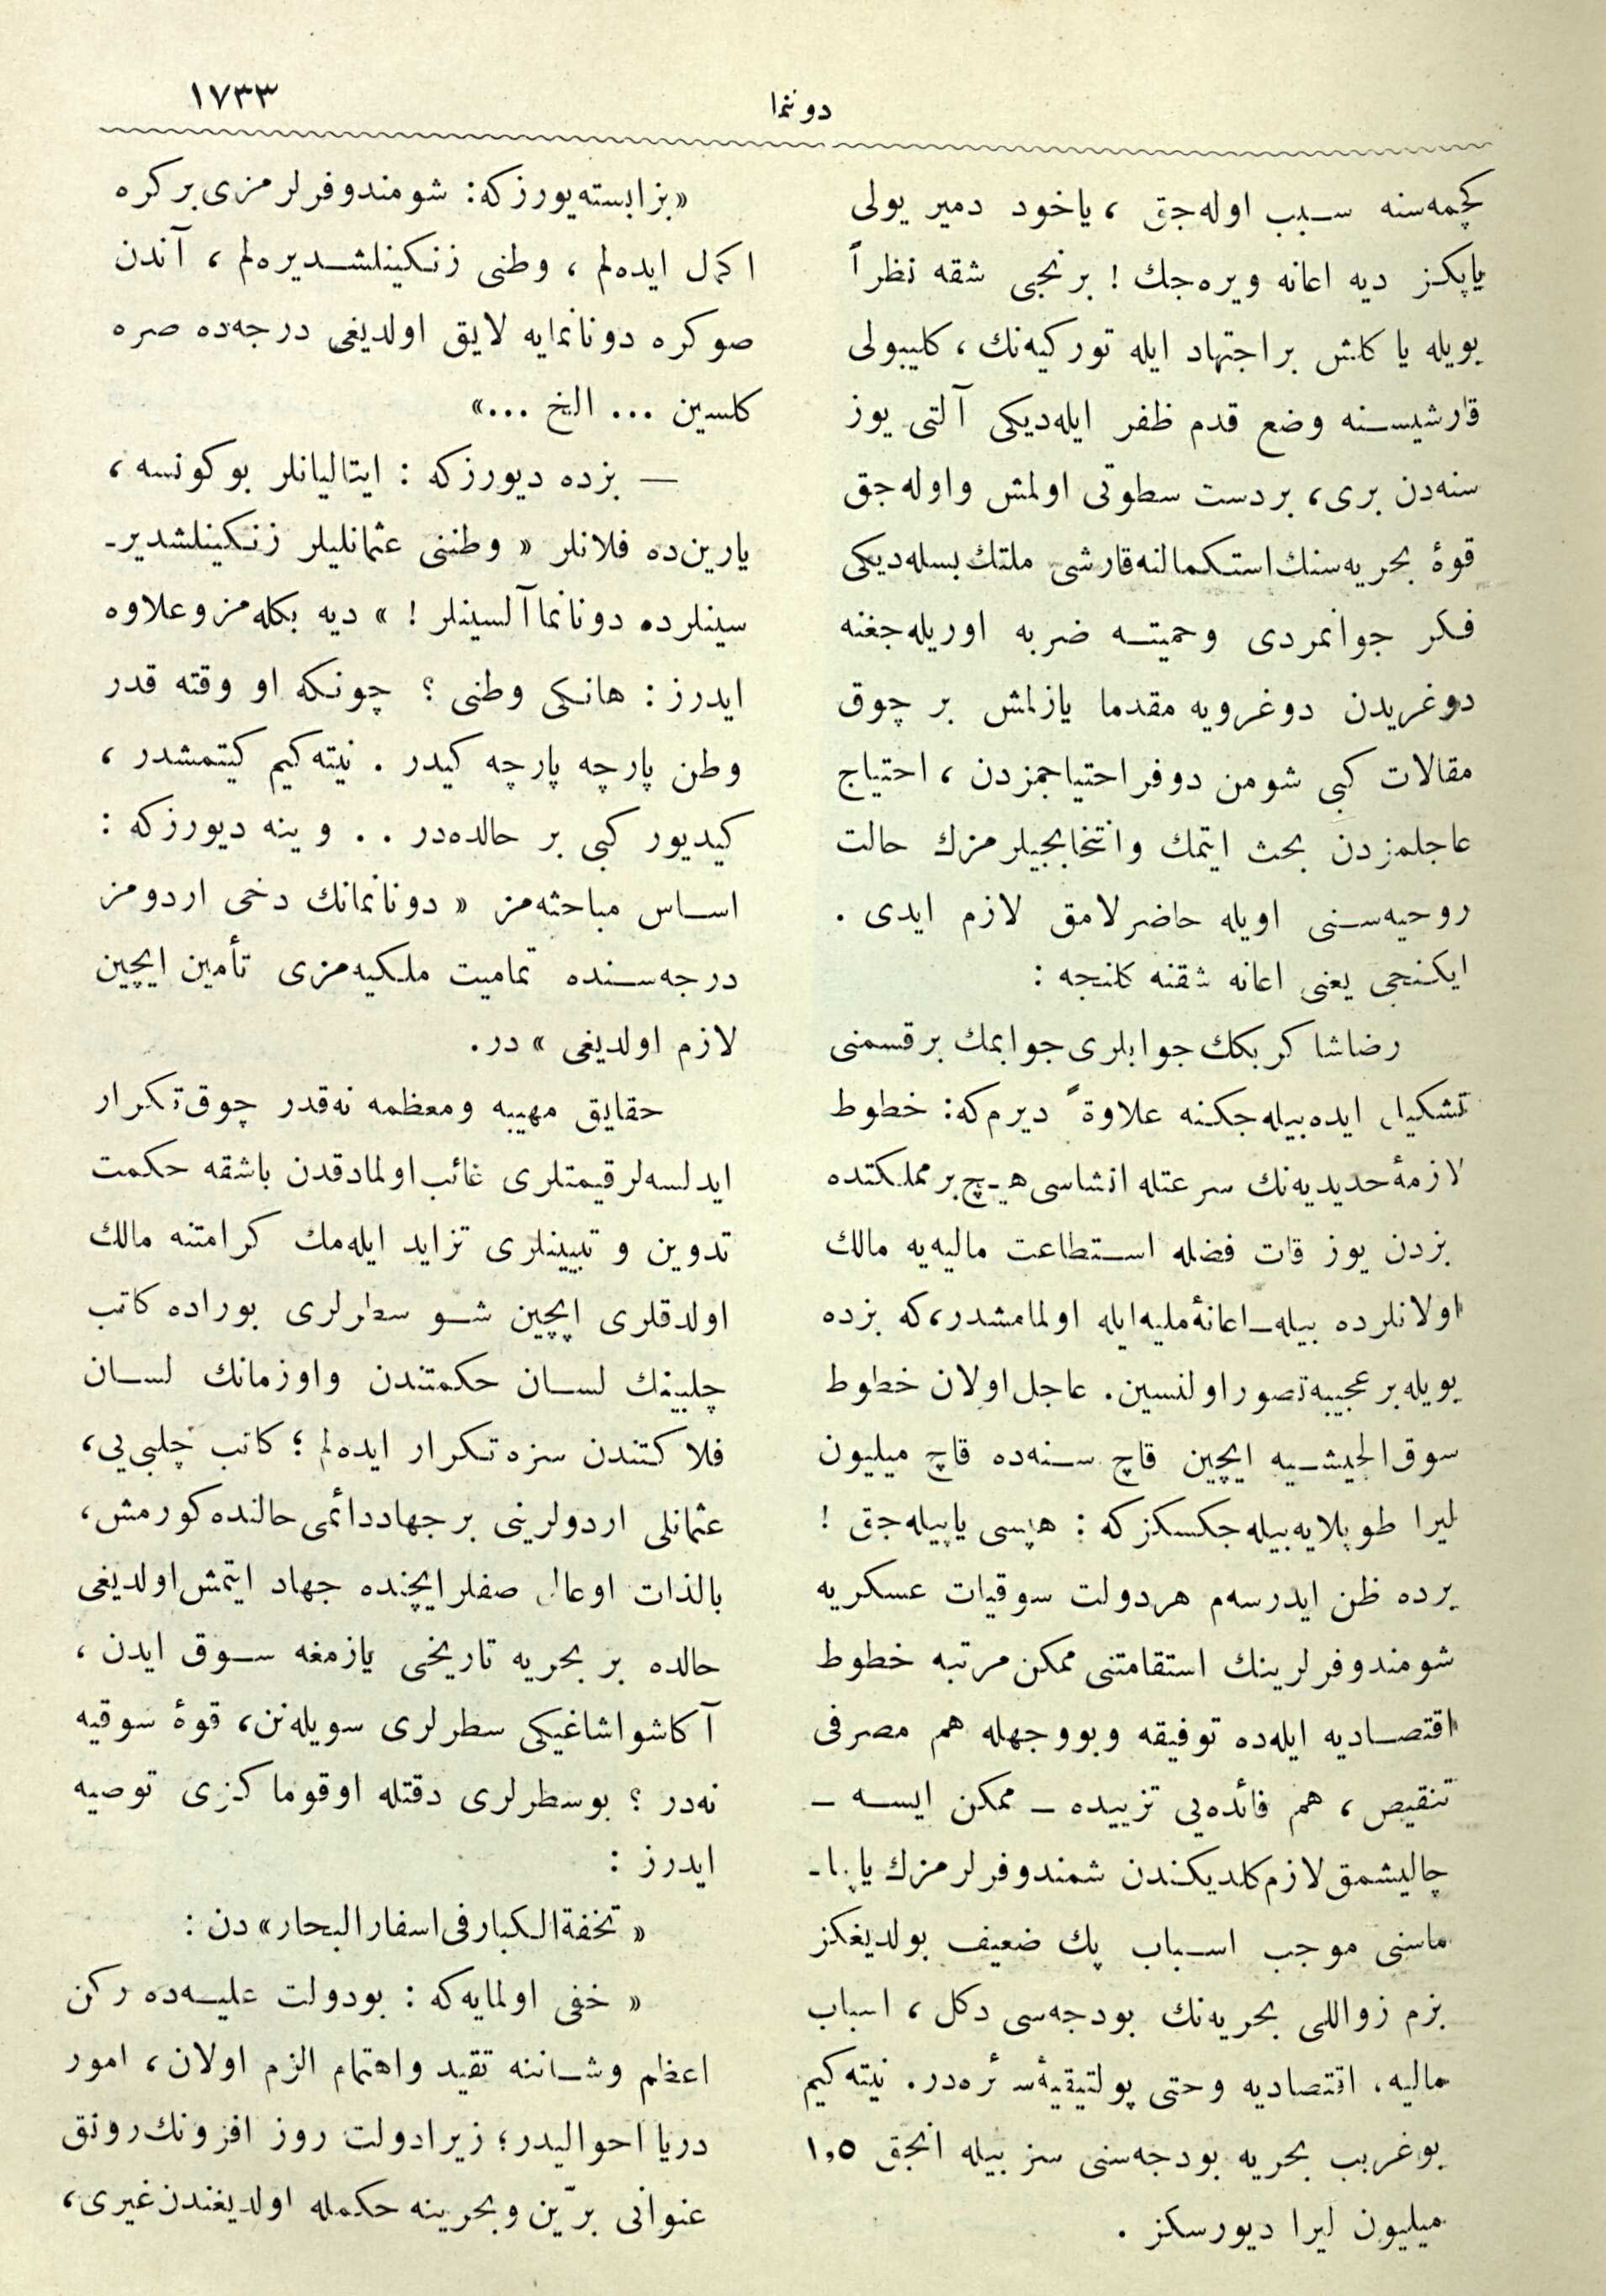 دوننما
١٧٣٣
كچمه‌سنه سبب اوله‌جق ، ياخود دمير يولى
ياپكز ديه اعانه ويره‌جك ! برنجى شقه نظراً
بويله ياكلش براجتهاد ايله توركيه‌نك ، كليبولى
قارشيسنه وضع قدم ظفر ايله‌ديكى آلتى يوز
سنه‌دن برى ، بردست سطوتى اولمش واوله‌جق
قوهٔ بحريه‌سنك استكمالنه قارشى ملتك بسله‌ديكى
فكر جوانمردى وحميته ضربه اوريله‌جغنه
دوغريدن دوغرويه مقدما يازلمش بر چوق
مقالات كبى شومن دوفر احتياجمزدن ، احتياج
عاجلمزدن بحث ايتمك وانتخابجيلرمزك حالت
روحيه‌سنى اويله حاضرلامق لازم ايدى .
ايكنجى يعنى اعانه شقنه كلنجه :
رضاشاكر بكك جوابلرى جوابمك برقسمنى
تشكيل ايده‌بيله‌جكنه علاوةً ديرم‌كه : خطوط
لازمهٔ حديديه‌نك سرعتله انشاسى هيچ برمملكتده
بزدن يوز قات فضله استطاعت ماليه‌يه مالك
اولانلرده بيله‌ـ اعانهٔ مليه ايله اولمامشدر ، كه بزده
بويله برعجيبه تصور اولنسين . عاجل اولان خطوط
سوق الجيشيه ايچين قاچ سنه‌ده قاچ ميليون
ليرا طوپلايه‌بيله‌جكسكزكه : هپسى ياپيله‌جق !
برده ظن ايدرسه‌م هردولت سوقيات عسكريه
شومندوفرلرينك استقامتنى ممكن مرتبه خطوط
اقتصاديه ايله‌ده توفيقه وبووجهله هم مصرفى
تنقيص ، هم فائده‌يى تزييده ـ ممكن ايسه ـ
چاليشمق لازم كلديكندن شمندوفرلرمزك ياپلا‌ـ
ماسنى موجب اسباب پك ضعيف بولديغكز
بزم زواللى بحريه‌نك بودجه‌سى دكل ، اسباب
ماليه ، اقتصاديه وحتى پولتيقيهٔ سائره‌در . نيته‌كيم
بوغريب بحريه بودجه‌سنى سز بيله انجق ١,٥
ميليون ليرا ديورسكز .
«بزايسته‌يورزكه : شومندوفرلرمزى بركره
اكمال ايده‌لم ، وطنى زنكينلشديره‌لم ، آندن
صوكره دونانمايه لايق اولديغى درجه‌ده صره
كلسين ... الخ ...»
— بزده ديورزكه : ايتاليانلر بوكونسه ،
يارين‌ده فلانلر « وطننى عثمانليلر زنكينلشديرـ
سينلرده دونانما آلسينلر ! » ديه بكله‌مز وعلاوه
ايدرز : هانكى وطنى ؟ چونكه او وقته قدر
وطن پارچه پارچه كيدر . نيته‌كيم كيتمشدر ،
كيديور كبى بر حالده‌در . . وينه ديورزكه :
اساس مباحثه‌مز « دونانمانك دخى اردومز
درجه‌سنده تماميت ملكيه‌مزى تأمين ايچين
لازم اولديغى » در .
حقايق مهيبه ومعظمه نه‌قدر چوق تكرار
ايدلسه‌لر قيمتلرى غائب اولمادقدن باشقه حكمت
تدوين و تبيينلرى تزايد ايله‌مك كرامتنه مالك
اولدقلرى ايچين شو سطرلرى بوراده كاتب
چلبينك لسان حكمتندن واوزمانك لسان
فلاكتندن سزه تكرار ايده‌لم ؛ كاتب چلبي‌يى ،
عثمانلى اردولرينى برجهاددائمى حالنده كورمش ،
بالذات اوعال صفلر ايچنده جهاد ايتمش اولديغى
حالده بر بحريه تاريخى يازمغه سوق ايدن ،
آكاشواشاغيكى سطرلرى سويله‌تن ، قوهٔ سوقيه
نه‌در ؟ بوسطرلرى دقتله اوقوماكزى توصيه
ايدرز :
« تحفة الكبار فى اسفار البحار» دن :
« خفى اولمايه‌كه : بودولت عليه‌ده ركن
اعظم وشاننه تقيد واهتمام الزم اولان ، امور
دريا احواليدر ؛ زيرا دولت روز افزونك رونق
عنوانى برّين وبحرينه حكمله اولديغندن غيرى ،